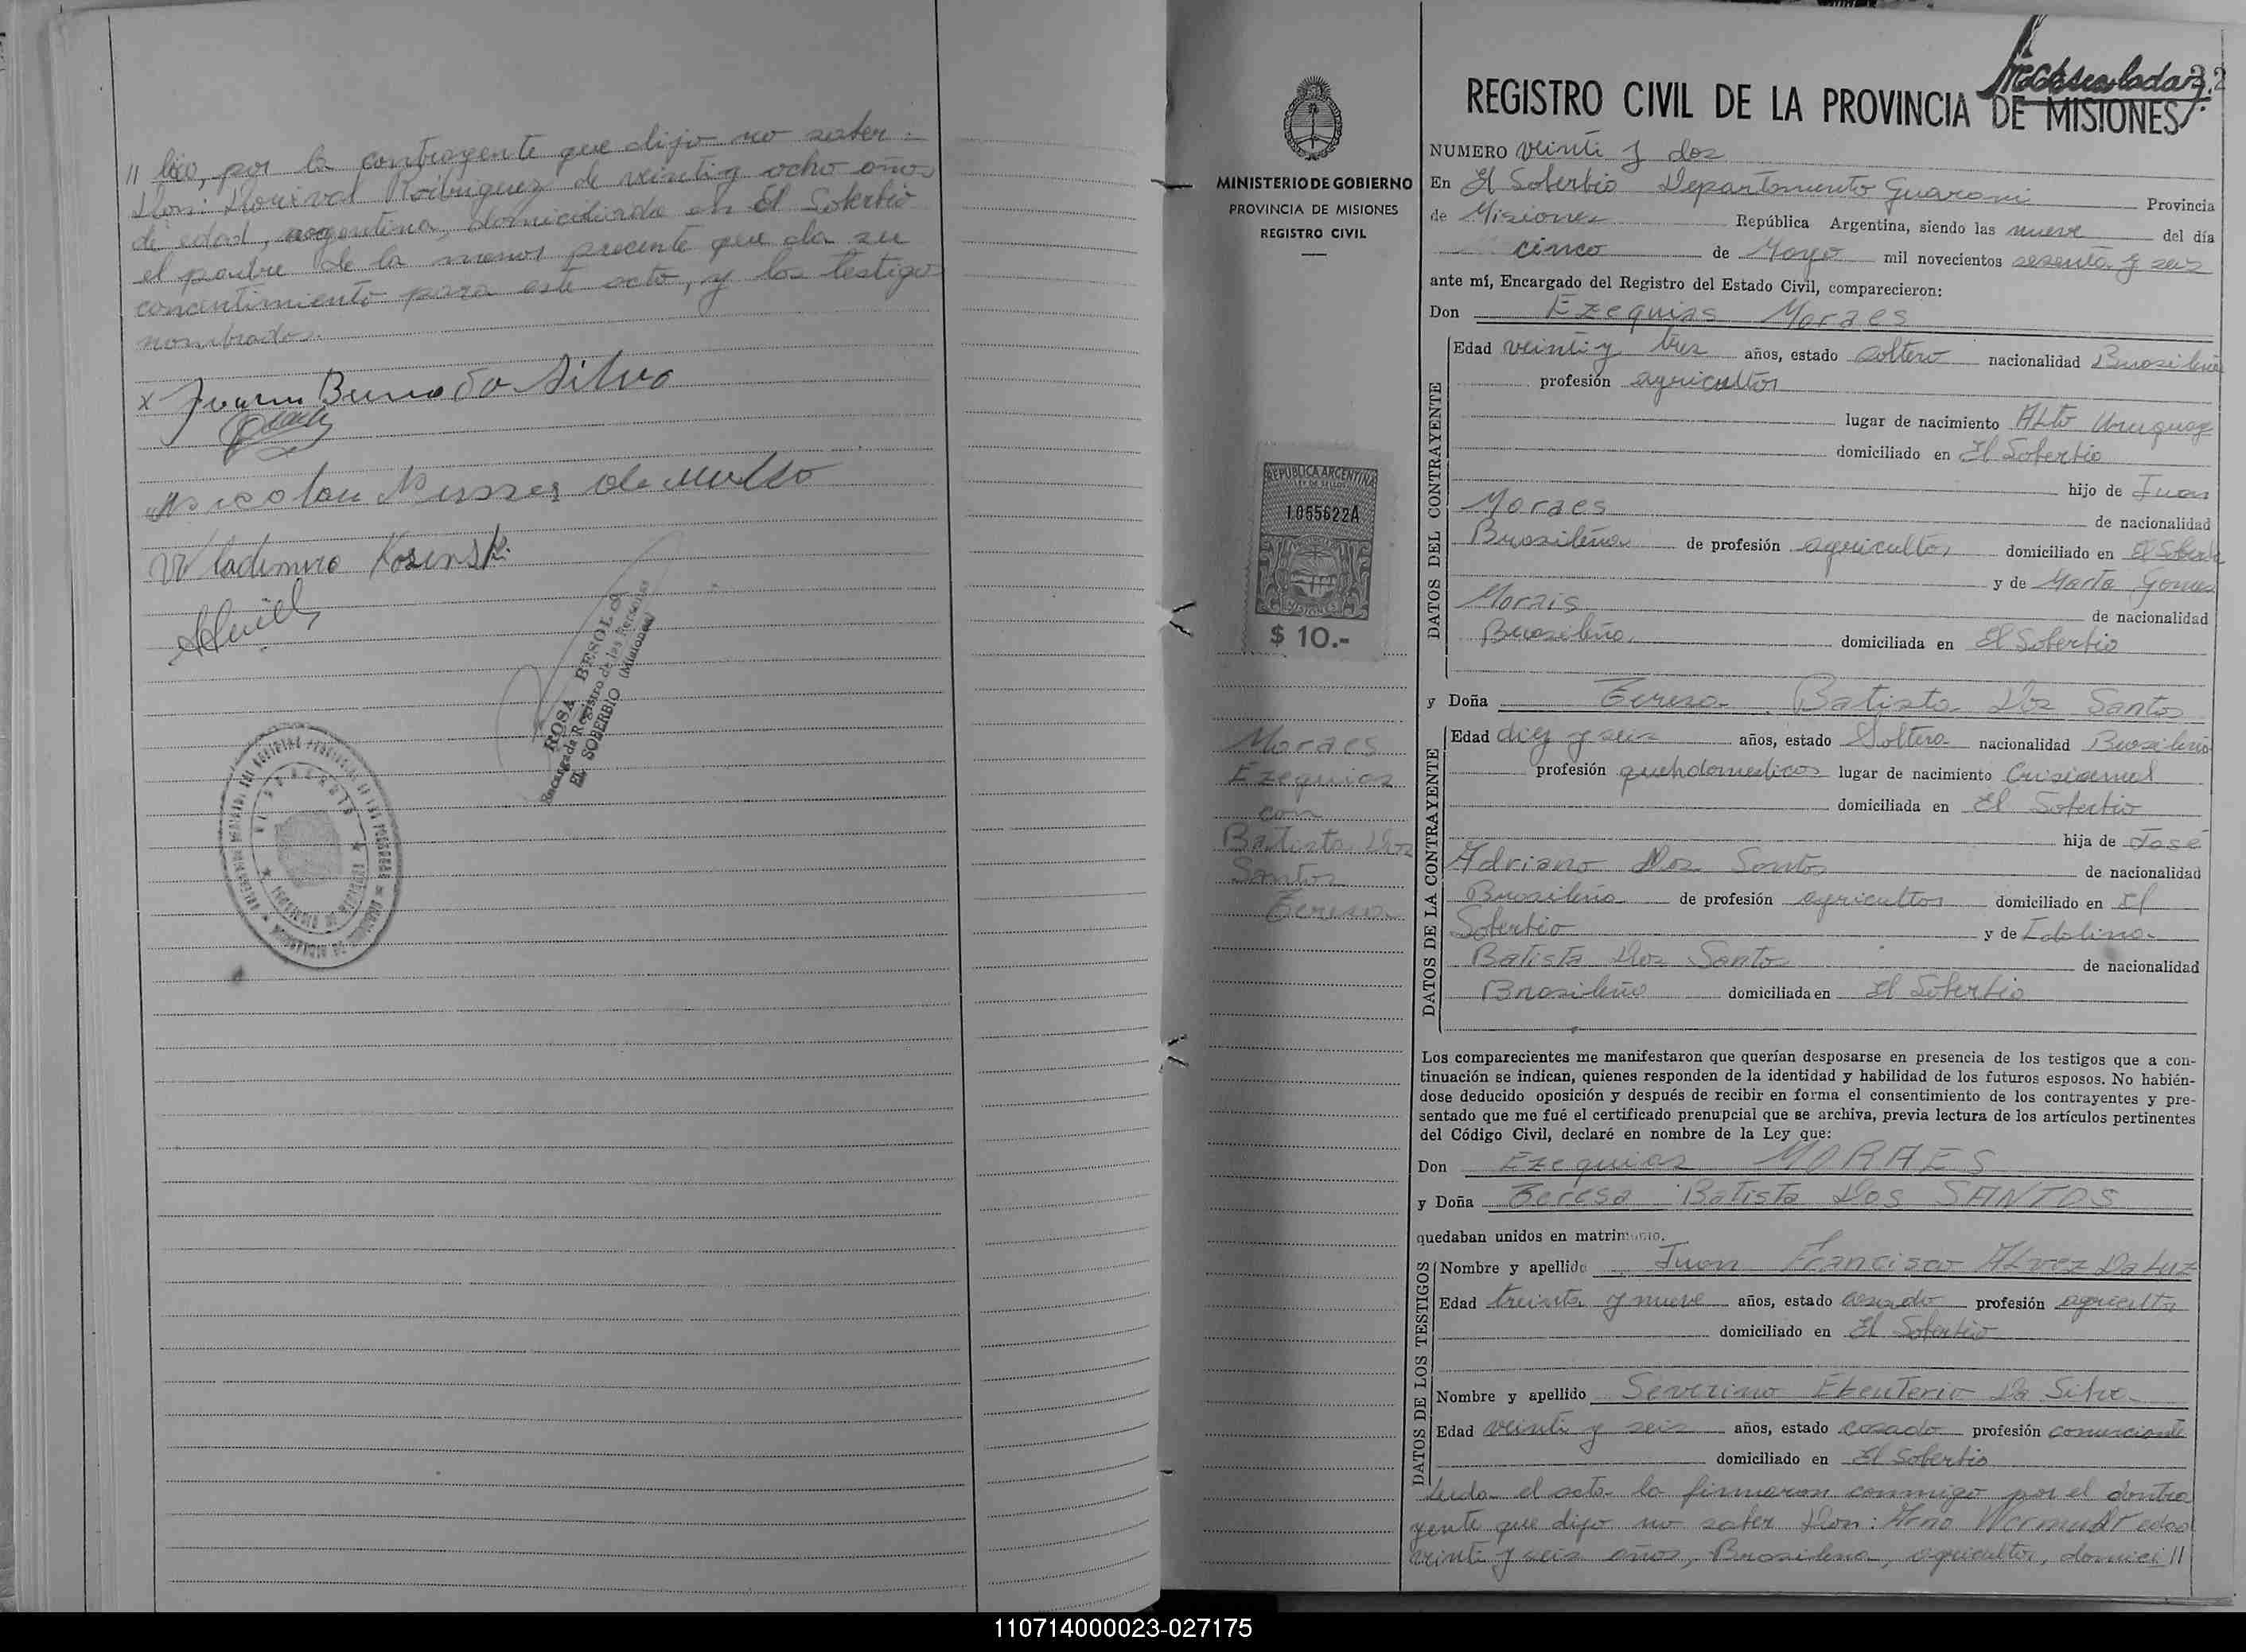 // lia, por la contrayente que dijo no saber
Don: Dorival Rodriguez de veinti y ocho años
de edad, argentino, domiciliado en El Soberbio
el padre de la menor presente que da su
concentimiento para este acto, y los testigos
nombrados.
x Juan Buno da Silva
Nicolau Nunnes de mello
Wladimiro Kosinski
ROSA BESOLD
Encargada Registro de las Personas
EL SOBERBIO (Misiones)
32
REGISTRO CIVIL DE LA PROVINCIA DE MISIONES
MINISTERIO DE GOBIERNO
PROVINCIA DE MISIONES
REGISTRO CIVIL
REPUBLICA ARGENTINA
LEY DE SELLOS
1.065622A
MISIONES
$ 10.-
Moraes
Ezequias
con
Batista Dos
Santos
Teresa
NUMERO veinti y dos
En El Soberbio Departamento Guarani Provincia
de Misiones República Argentina, siendo las nueve del día
cinco de Mayo mil novecientos sesenta y seis
ante mí, Encargado del Registro del Estado Civil, comparecieron:
Don Ezequias Moraes
DATOS DEL CONTRAYENTE
Edad veinti y tres años, estado soltero nacionalidad Brasileña
profesión agricultor
lugar de nacimiento Alto Uruguay
domiciliado en El Soberbio
hijo de Juan
Moraes de nacionalidad
Brasileña de profesión agricultor domiciliado en El Soberbio
y de Marta Gomes
Morais de nacionalidad
Brasileña domiciliada en El Soberbio
y Doña Teresa Batista Dos Santos
DATOS DE LA CONTRAYENTE
Edad diez y seis años, estado Soltera nacionalidad Brasileña
profesión quehdomesticos lugar de nacimiento Crisiumal
domiciliada en El Soberbio
hija de José
Adriano Dos Santos de nacionalidad
Brasileña de profesión agricultor domiciliado en El
Soberbio y de Idalina
Batista Dos Santos de nacionalidad
Brasileña domiciliada en El Soberbio
Los comparecientes me manifestaron que querían desposarse en presencia de los testigos que a con-
tinuación se indican, quienes responden de la identidad y habilidad de los futuros esposos. No habién-
dose deducido oposición y después de recibir en forma el consentimiento de los contrayentes y pre-
sentado que me fué el certificado prenupcial que se archiva, previa lectura de los artículos pertinentes
del Código Civil, declaré en nombre de la Ley que:
Don Ezequias MORAES
y Doña Teresa Batista Dos SANTOS
quedaban unidos en matrimonio.
DATOS DE LOS TESTIGOS
Nombre y apellido Juan Francisco Alvez Da Luz
Edad treinta y nueve años, estado casado profesión agricultor
domiciliado en El Soberbio
Nombre y apellido Severino Eleuterio Da Silva
Edad veinti y seis años, estado casado profesión comerciante
domiciliado en El Soberbio
Leida el acta la firmaron conmigo por el contra
yente que dijo no saber Don: Arno Wermudt edad
veinti y seis años, Brasileña, agricultor, domici //
110714000023-027175